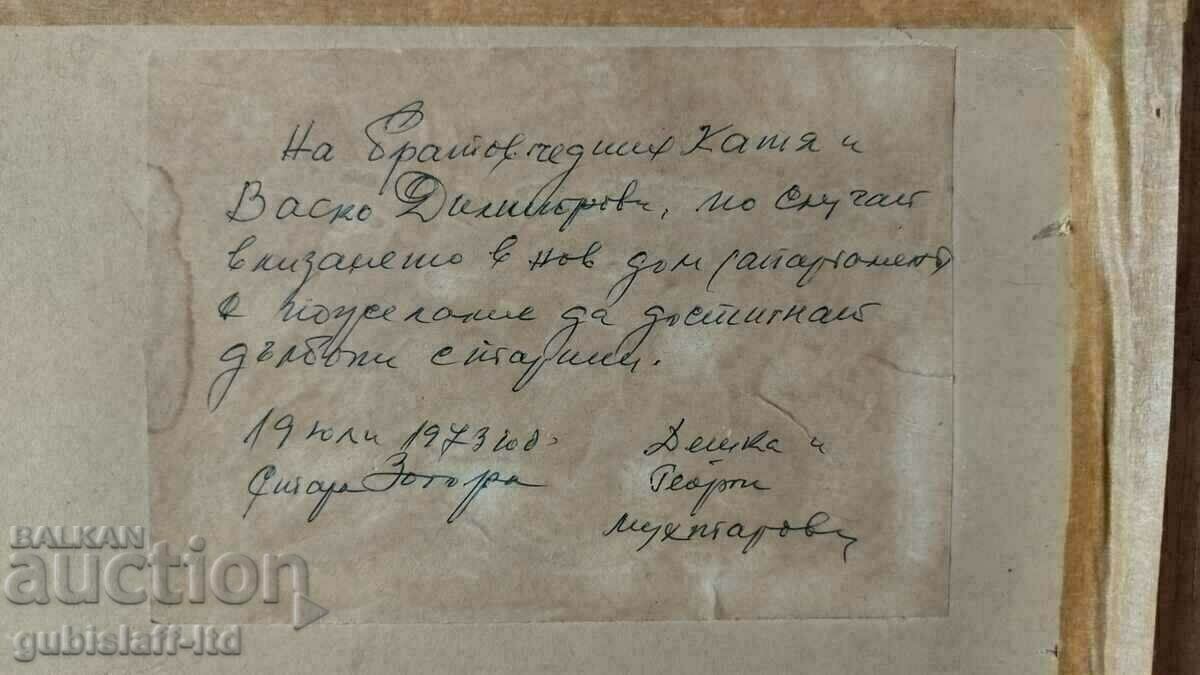 На братовчедших Катя и
Васко Димитрови, по случай
влизането в нов дом /апартамент/
с пожелание да достигнат
дълбоки старини.
19 юли 1973 год.
Стара Загора
Дешка и
Георги
Мухтарови
BALKAN
auction
gubislaff-ltd